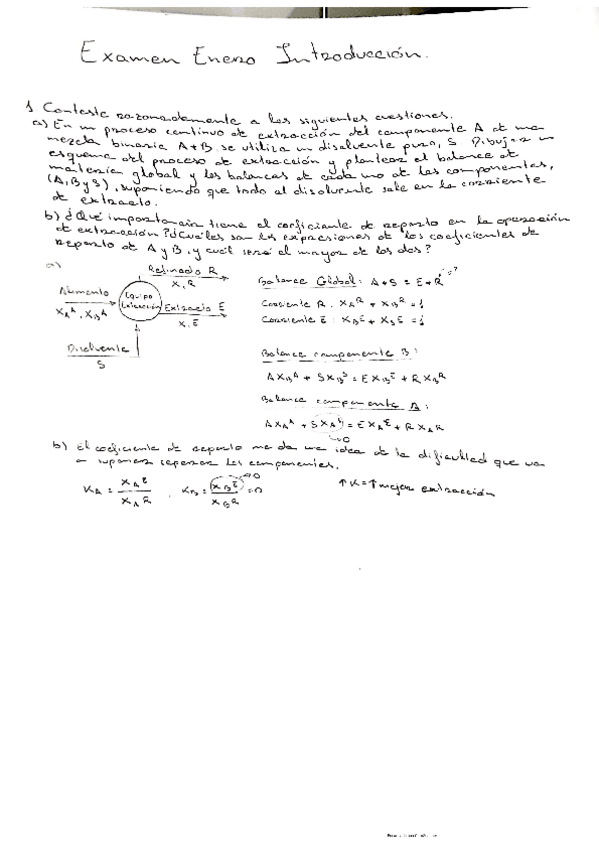 Examen Enero Introducción.
1 Conteste razonadamente a las siguientes cuestiones.
a) En un proceso continuo de extracción del componente A de una
mezcla binaria A+B se utiliza un disolvente puro, S Dibujar un
esquema del proceso de extracción y plantear el balance de
materia global y los balances de cada uno de los componentes,
(A, B y S), suponiendo que todo el disolvente sale en la corriente
de extracto.
b) ¿Qué importancia tiene el coeficiente de reparto en la operación
de extracción? ¿Cuáles son las expresiones de los coeficientes de
reparto de A y B, y cuál será el mayor de los dos?
a)
Refinado R
X, R
Alimento
XAA, XBA
Equipo
Extracción
Extracto E
X, E
Disolvente
S
Balance Global: A+S = E+R
Corriente R: XAR + XBR = 1
Corriente E: XBE + XSE = 1
Balance componente B:
AXBA + SXBS = EXBE + RXBR
Balance componente A:
AXAA + SXAS = EXAE + RXAR
=0
b) El coeficiente de reparto me da una idea de la dificultad que va
a suponer separar los componentes.
KA = XAE / XAR , KB = XBE / XBR = 0
↑K = ↑ mejor extracción